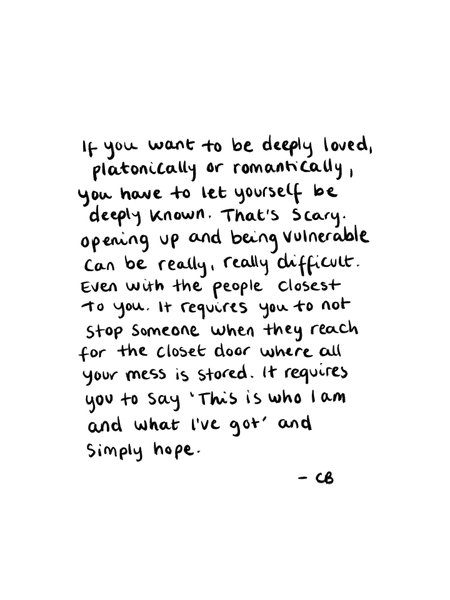 If you want to be deeply loved,
platonically or romantically,
you have to let yourself be
deeply known. That's scary.
opening up and being vulnerable
can be really, really difficult.
Even with the people closest
to you. It requires you to not
stop someone when they reach
for the closet door where all
your mess is stored. It requires
you to say 'This is who I am
and what I've got' and
simply hope.
- CB